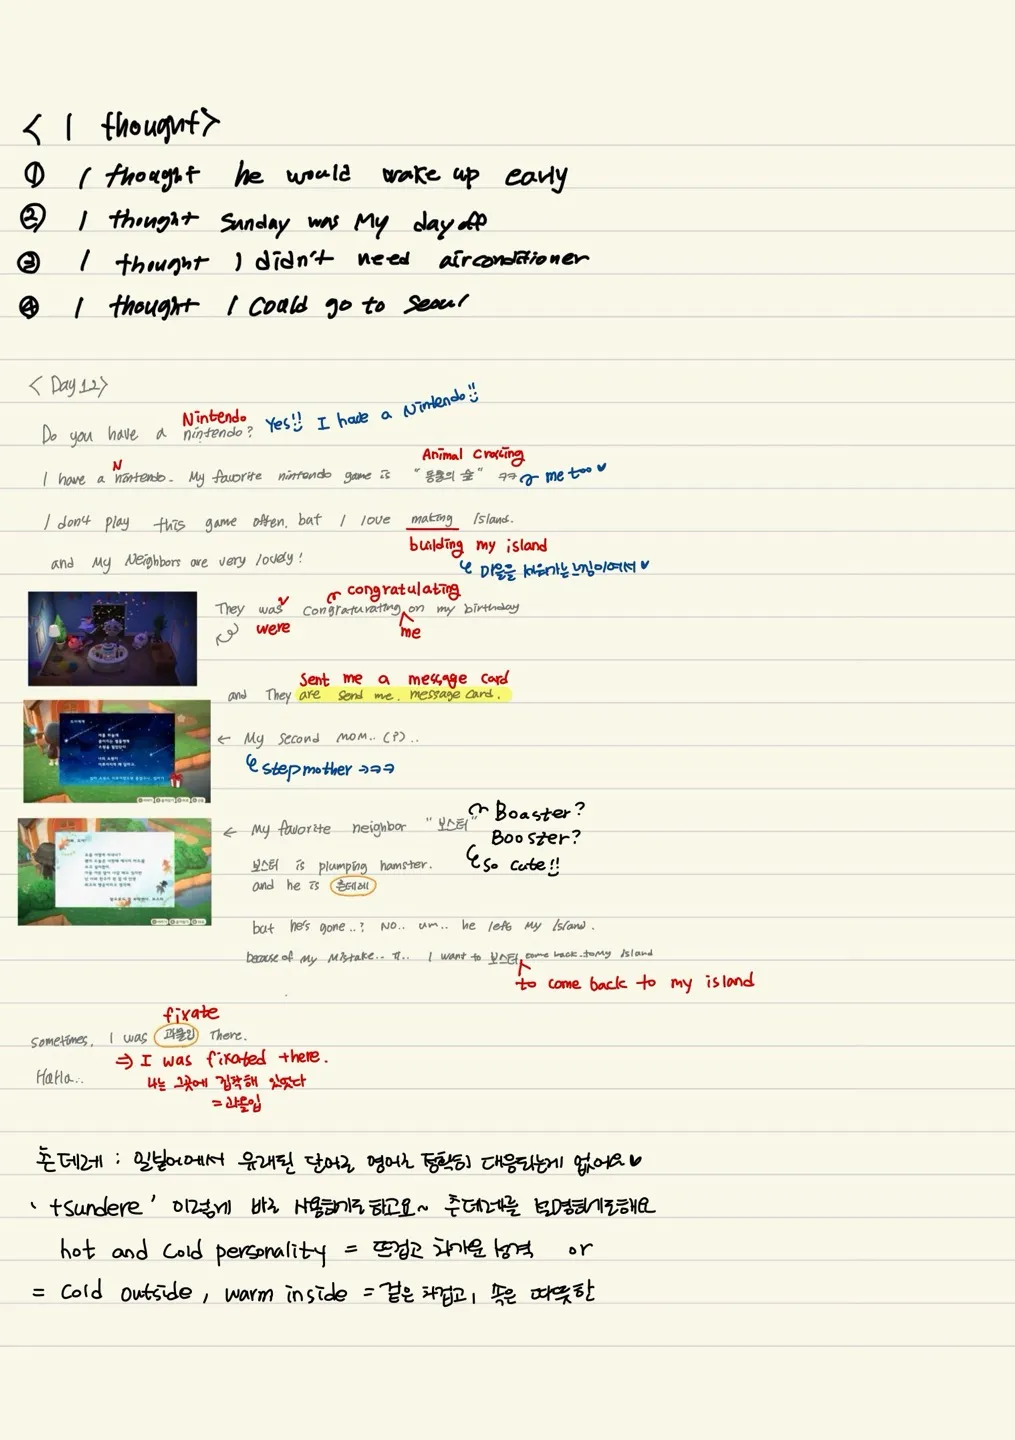 < I thought>
① I thought he would wake up early
② I thought Sunday was My day off
③ I thought I didn't need airconditioner
④ I thought I Could go to Seoul
< Day 12>
Nintendo Yes!! I have a Nintendo!!
Do you have a nintendo?
N Animal Crossing
I have a nintendo. My favorite nintendo game is " 동물의 숲" ㅋㅋ me too ♥
I don't play this game often. but I love making Island.
building my island
and My Neighbors are very lovely!
마을을 키워가는 느낌이여서 ♥
congratulating
They was Congraturating on my birthday
were me
Sent me a message card
and They are send me. message card.
← My second mom.. (?) ..
step mother ㅋㅋㅋ
Boaster?
← My favorite neighbor "보스터"
Booster?
보스터 is plumping hamster.
So cute!!
and he is 츤데레
but he's gone..? No.. um.. he left My Island.
because of my Mistake.. ㅠ.. I want to 보스터 come back. to My Island
to come back to my island
fixate
sometimes, I was 과몰입 There.
⇒ I was fixated there.
HaHa..
나는 그곳에 집착해 있었다
= 과몰입
츤데레 : 일본어에서 유래된 단어로 영어로 정확히 대응되는게 없어요 ♥
' tsundere ' 이렇게 바로 사용하기도 하고요~ 츤데레를 설명하기도해요
hot and Cold personality = 뜨겁고 차가운 성격 or
= Cold outside, warm inside = 겉은 차갑고, 속은 따뜻한